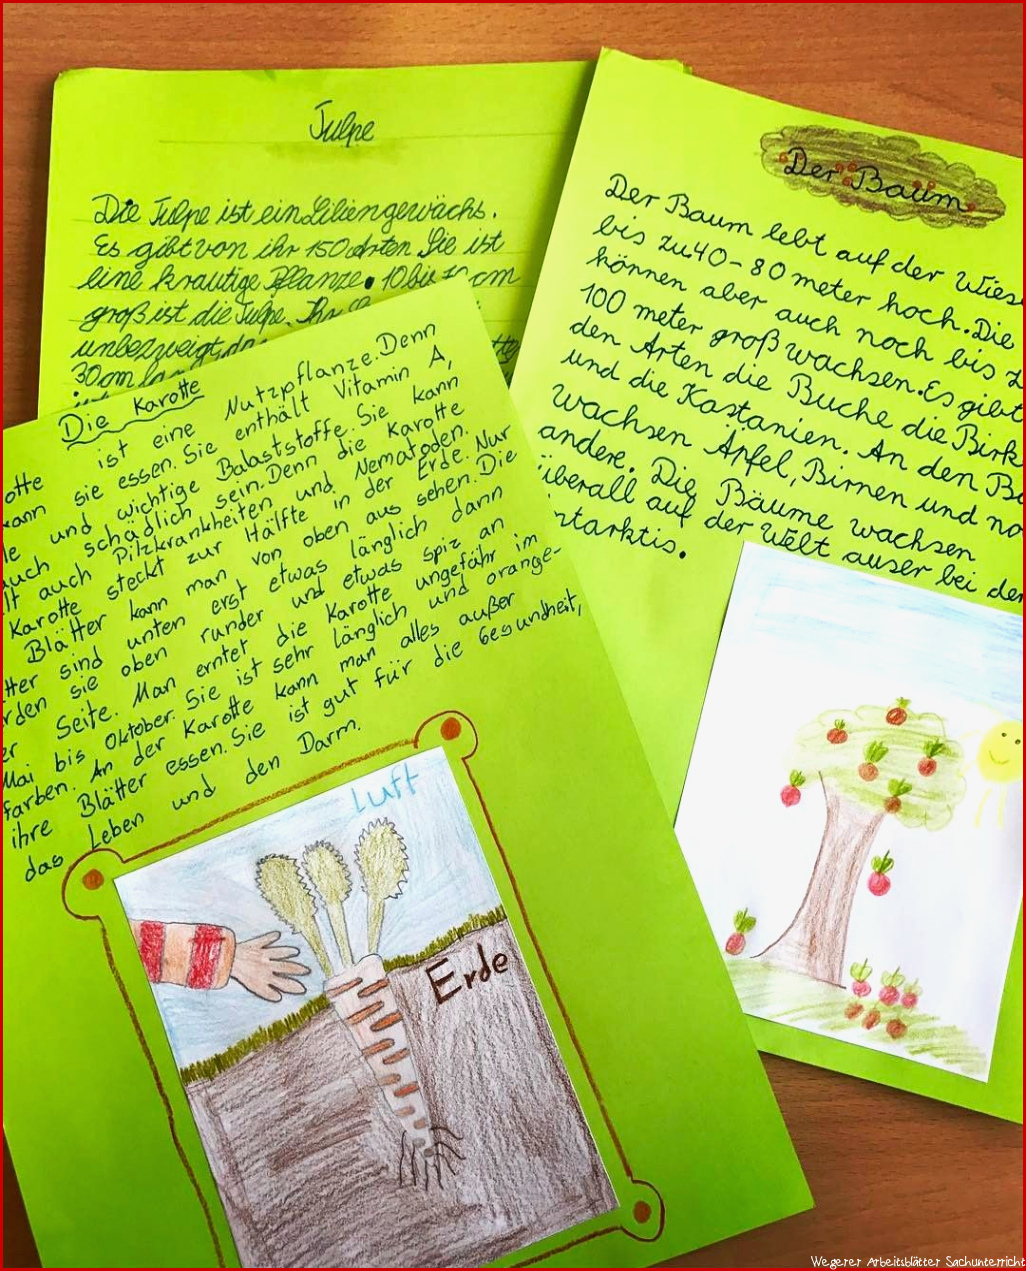 Tulpe
Die Tulpe ist ein Liliengewächs.
Es gibt von ihr 150 Arten Sie ist
eine krautige Pflanze. 10 bis cm
groß ist die Tulpe. Ihr
unbezweigt,
30cm
Der Baum
Der Baum lebt auf der Wiese
bis zu 40-80 meter hoch. Die
können aber auch noch bis z
100 meter groß wachsen. Es gibt
den Arten die Buche die Birk
und die Kastanien. An den B
wachsen Äpfel, Birnen und no
andere. Die Bäume wachsen
überall auf der Welt auser bei der
ntarktis.
Die Karotte
otte ist eine Nutzpflanze. Denn
kann sie essen. Sie enthält Vitamin A,
le und wichtige Balaststoffe. Sie kann
auch schädlich sein. Denn die Karotte
lt auch Pilzkrankheiten und Nematoden.
Karotte steckt zur Hälfte in der Erde. Nur
Blätter kann man von oben aus sehen. Die
tter sind unten erst etwas länglich dann
rden sie oben runder und etwas spiz an
er Seite. Man erntet die Karotte ungefähr im
Mai bis Oktober. Sie ist sehr länglich und orange-
farben. An der Karotte kann man alles außer
ihre Blätter essen. Sie ist gut für die Gesundheit,
das Leben und den Darm.
Luft
Erde
Wegerer Arbeitsblätter Sachunterricht